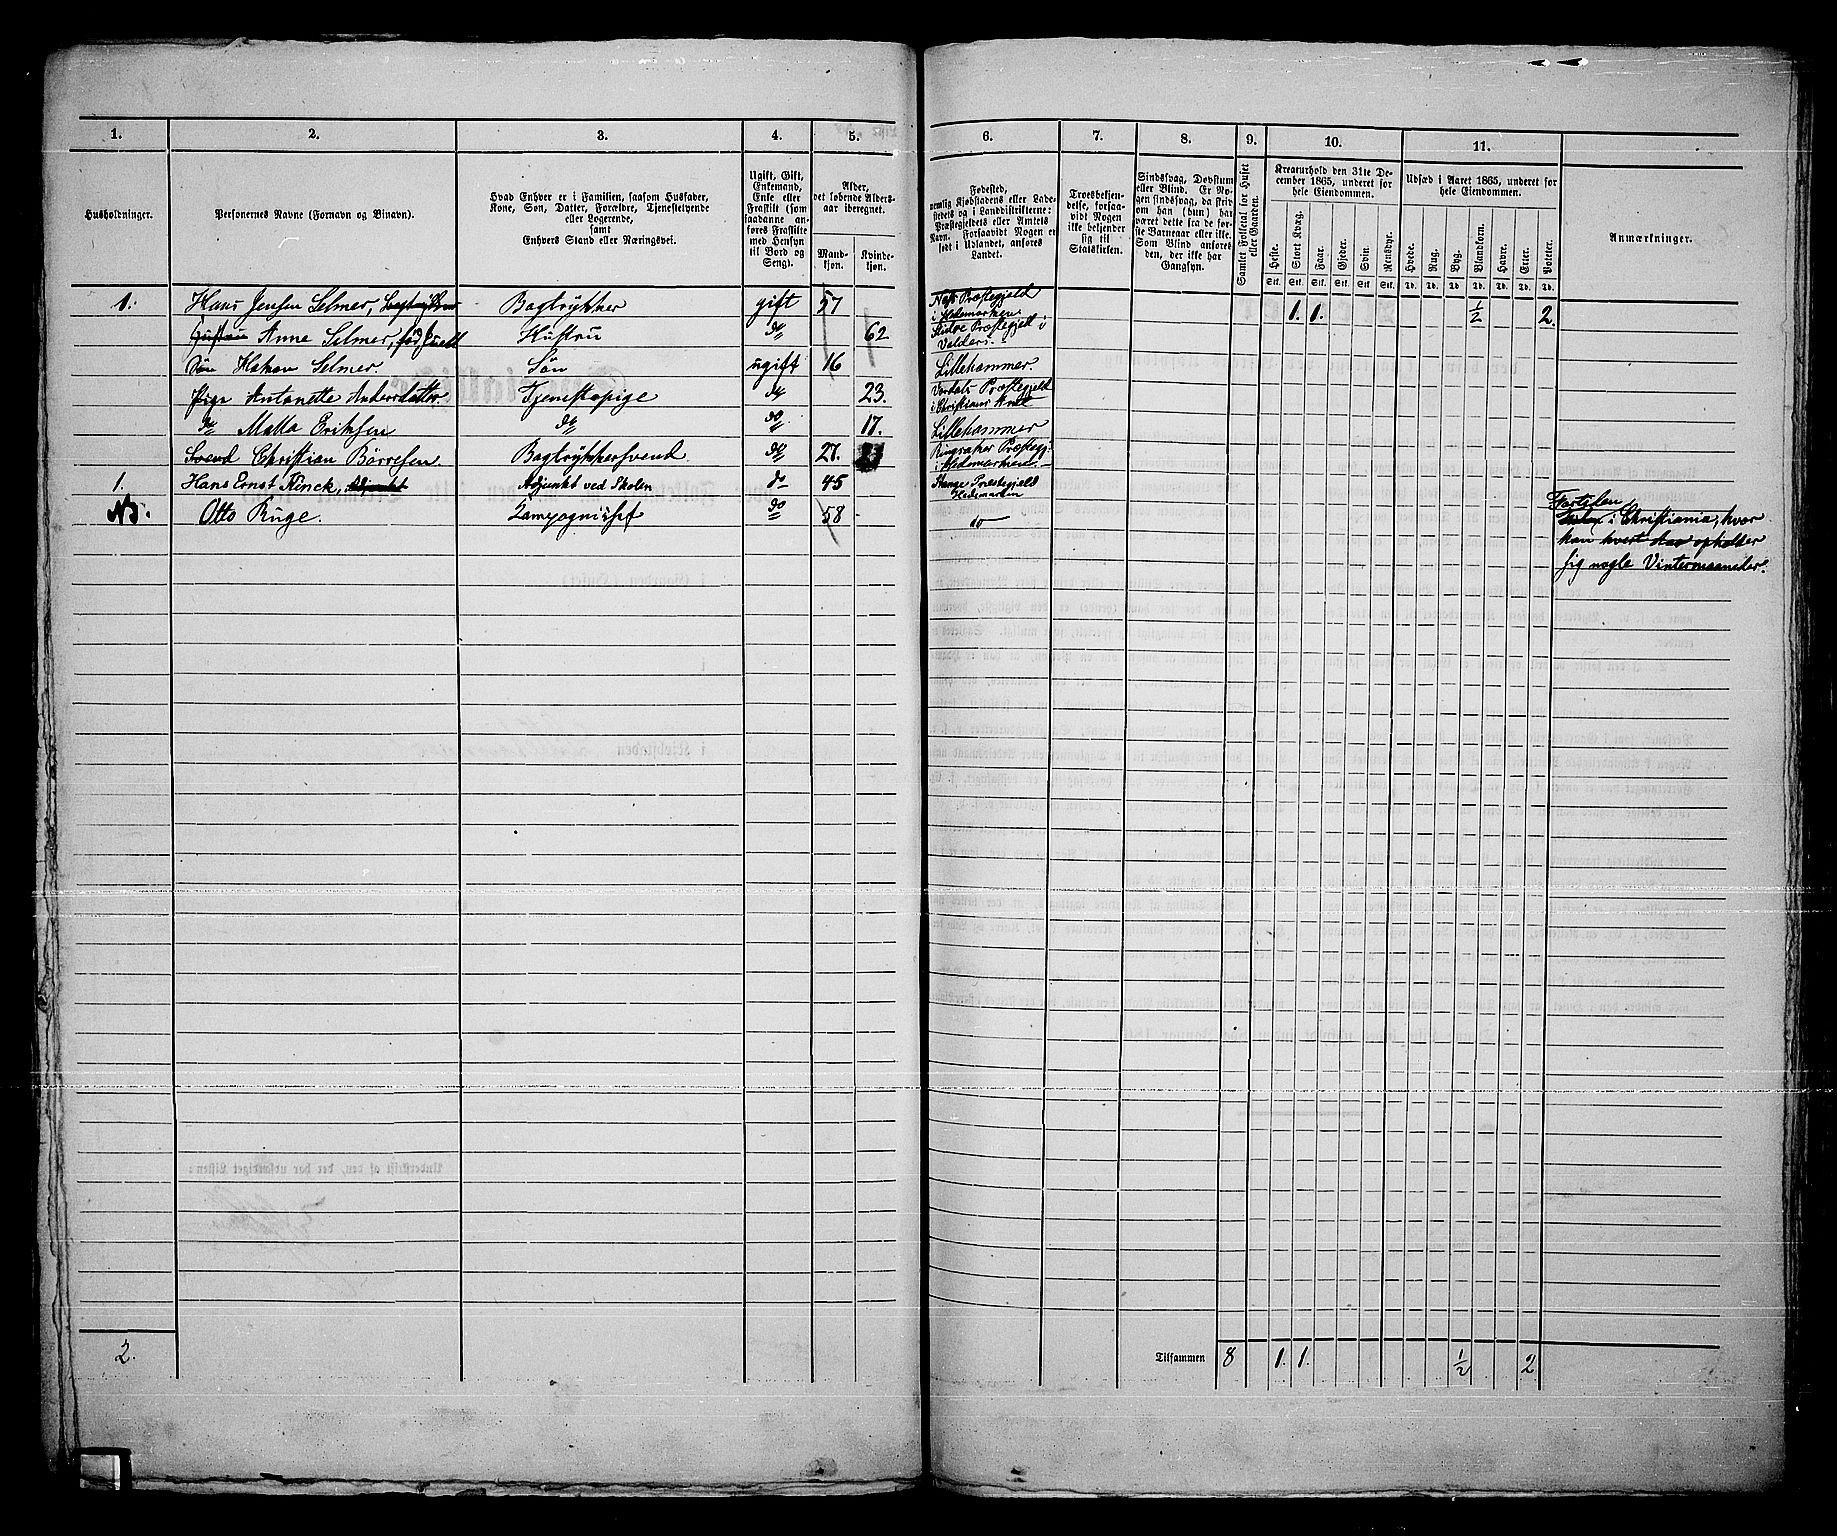 1. 2. 3. 4. 5. 6. 7. 8. 9. 10. 11.
Husholdninger.
Personernes Navne (Fornavn og Binavn).
Hvad Enhver er i Familien, saasom Husfader,
Kone, Søn, Datter, Forældre, Tjenestetyende
eller Logerende,
samt
Enhvers Stand eller Næringsvei.
Ugift, Gift,
Enkemand,
Enke eller
Fraskilt (som
saadanne an-
føres Fraskilte
med Hensyn
til Bord og
Seng).
Alder,
det løbende Alders-
aar iberegnet.
Mand-
kjøn.
Kvinde-
kjøn.
Fødested,
nemlig Kjøbstadens eller Lade-
stedets og i Landdistrikterne:
Præstegjeldets eller Amtets
Navn. Forsaavidt Nogen er
født i Udlandet, anføres
Landet.
Troesbekjen-
delse, forsaa-
vidt Nogen
ikke bekjender
sig til
Statskirken.
Sindssvag, Døvstum
eller Blind. Er No-
gen sindssvag, da skriv
om han (hun) har
været dette fra de før-
ste Barneaar eller ikke.
Som Blind anføres
den, der ikke har
Gangsyn.
Samlet Folketal for Huset
eller Gaarden.
Kreaturhold den 31te De-
cember 1865, underet for
hele Eiendommen.
Heste. Stort Kvæg. Faar. Gjeder. Svin. Rensdyr.
Stk. Stk. Stk. Stk. Stk. Stk.
Udsæd i Aaret 1865, underet for
hele Eiendommen.
Hvede. Rug. Byg. Blandkorn. Havre. Erter. Poteter.
Td. Td. Td. Td. Td. Td. Td.
Anmærkninger.
1. Hans Jensen Selmer, Bogtrykker gift 57 Næs Præstegjeld i Hedemarken 1. 1. ½ 2.
Anne Selmer, fød Quall Hustru do 62 Slidre Præstegjeld i Valders.
Søn Hakon Selmer Søn ugift 16 Lillehammer.
Pige Antonette Andersdatter Tjenestepige do 23. Præstegjeld i Christians Amt
do Matta Eriksen do do 17. Lillehammer
Svend Christian Börresen Bogtrykkersvend do 27. Ringsaker Præstegj. i Hedemarken.
1. Hans Ernst Ninck, Adjunkt Adjunkt ved Skolen do 45 Stange Præstegjeld Hedemarken
Otto Ruge. do 58 do
i Christiania, hvor
han hvert Aar opholder
sig nogle Vintermaaneder.
2. Tilsammen 8 1. 1. ½ 2